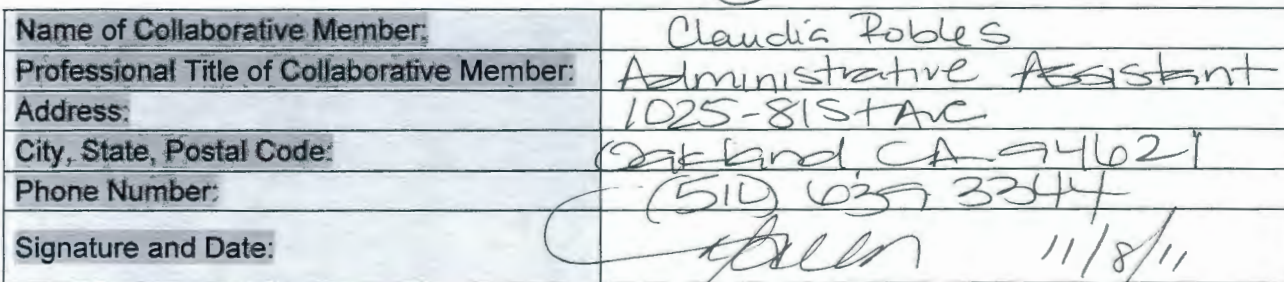 Name of Collaborative Member: Claudia Robles
Professional Title of Collaborative Member: Administrative Assistant
Address: 1025-81st Ave
City, State, Postal Code: Oakland CA 94621
Phone Number: (510) 639 3344
Signature and Date: 11/8/11